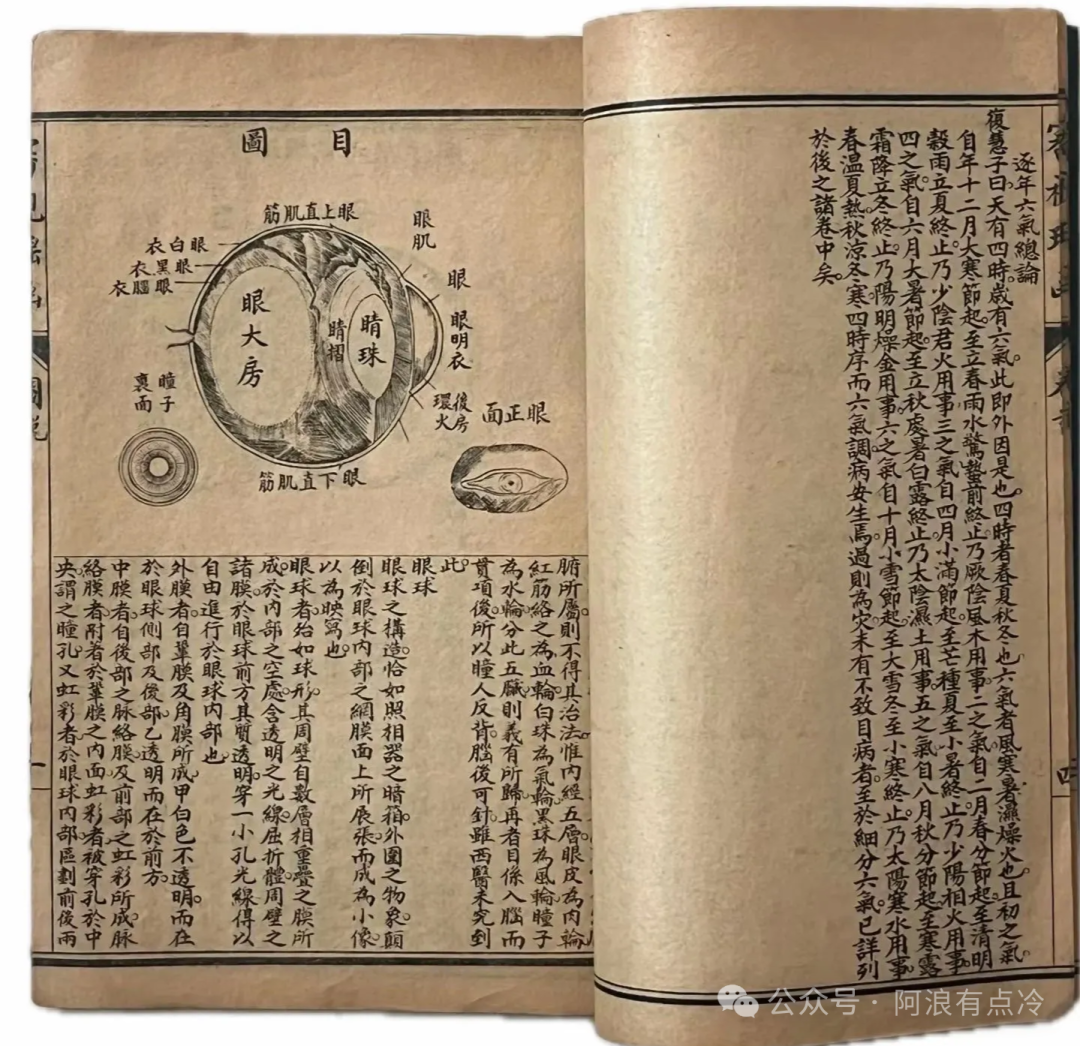 逐年六氣總論
復慧子曰天有四時歲有六氣此即外因是也四時者春夏秋冬也六氣者風寒暑濕燥火也且初之氣
自年十二月大寒節起至立春雨水驚蟄前終止乃厥陰風木用事二之氣自二月春分節起至清明
穀雨立夏終止乃少陰君火用事三之氣自四月小滿節起至芒種夏至小暑終止乃少陽相火用事
四之氣自六月大暑節起至立秋處暑白露終止乃太陰濕土用事五之氣自八月秋分節起至寒露
霜降立冬終止乃陽明燥金用事六之氣自十月小雪節起至大雪冬至小寒終止乃太陽寒水用事
春溫夏熱秋涼冬寒四時序而六氣調病安生焉過則為灾未有不致目病者至於細分六氣已詳列
於後之諸卷中矣
四
目圖
眼上直肌筋
眼白衣
眼黑衣
眼腦衣
眼大房
睛摺
睛珠
眼肌
眼
眼明衣
後房
環火
眼下直肌筋
瞳子
裏面
眼正面
腑所屬則不得其治法惟內經五層眼皮為肉輪
紅筋絡之為血輪白珠為氣輪黑珠為風輪瞳子
為水輪分此五臟則義有所歸再者目係入腦而
貫項後所以瞳人反背腦後可針雖西醫未究到
此
眼球
眼球之構造恰如照相器之暗箱外圍之物象顛
倒於眼球內部之網膜面上所展張而成為小像
以為映寫也
眼球者殆如球形其周壁自數層相重疊之膜所
成於內部之空處含透明之光線屈折體周壁之
諸膜於眼球前方其質透明穿一小孔光線得以
自由進行於眼球內部也
外膜者自鞏膜及角膜所成甲白色不透明而在
於眼球側部及後部乙透明而在於前方
中膜者自後部之脉絡膜及前部之虹彩所成脉
絡膜者附著於鞏膜之內面虹彩者被穿孔於中
央謂之瞳孔又虹彩者於眼球內部區劃前後兩
公众号 · 阿浪有点冷